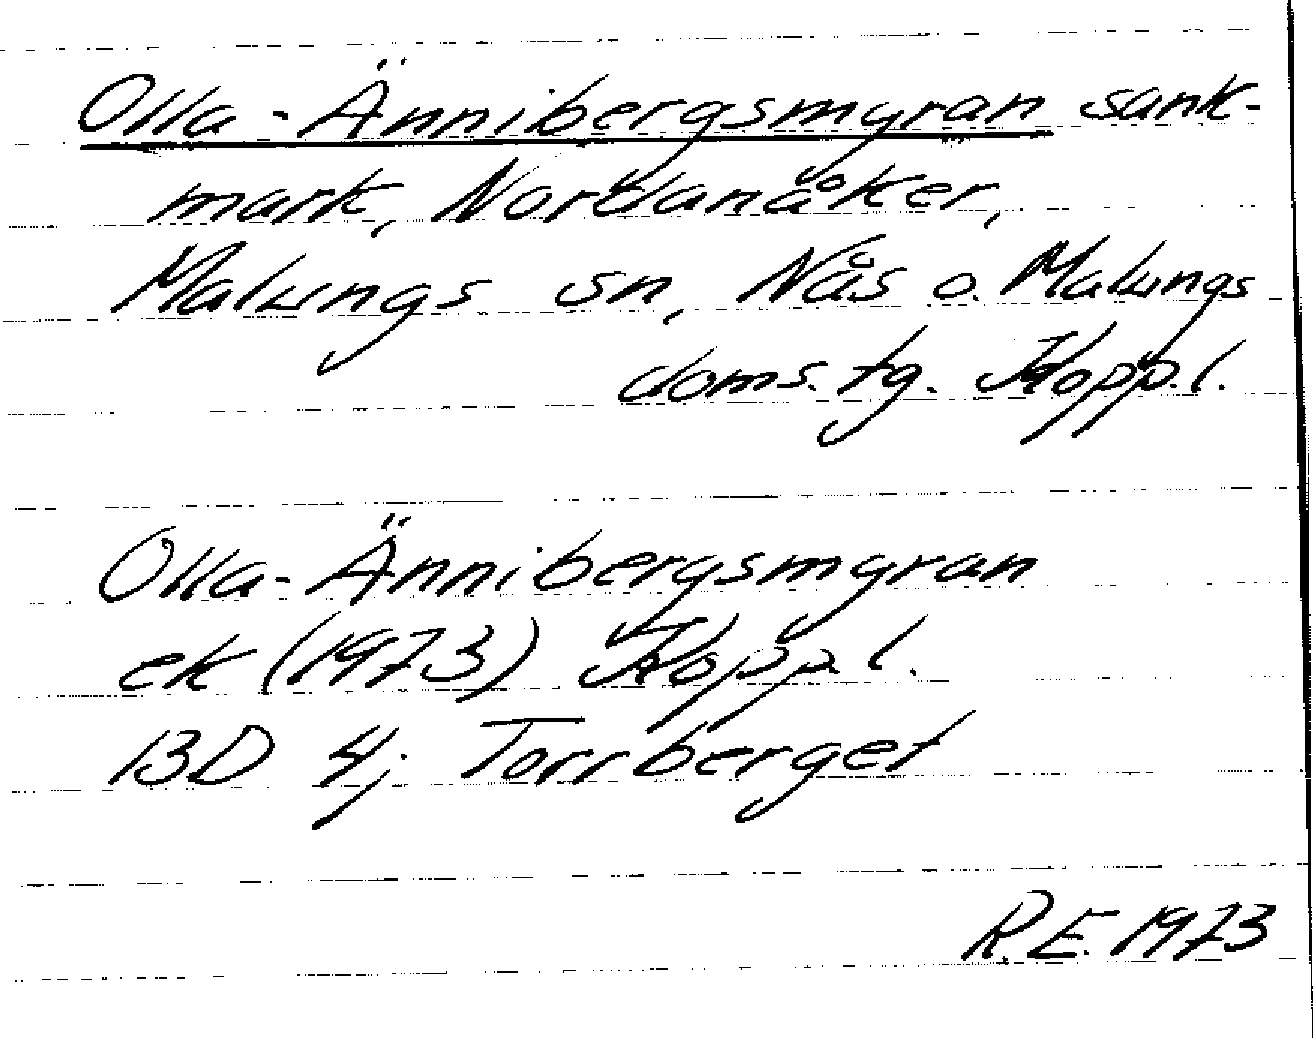 Olla-Ännibergsmyran sank-
mark, Nordanåker,
Malungs sn, Nås o. Malungs
doms. tg. Kopp.l.
Olla-Ännibergsmyran
ek (1973) Kopp.l.
13D 4j Torrberget
R.E. 1973